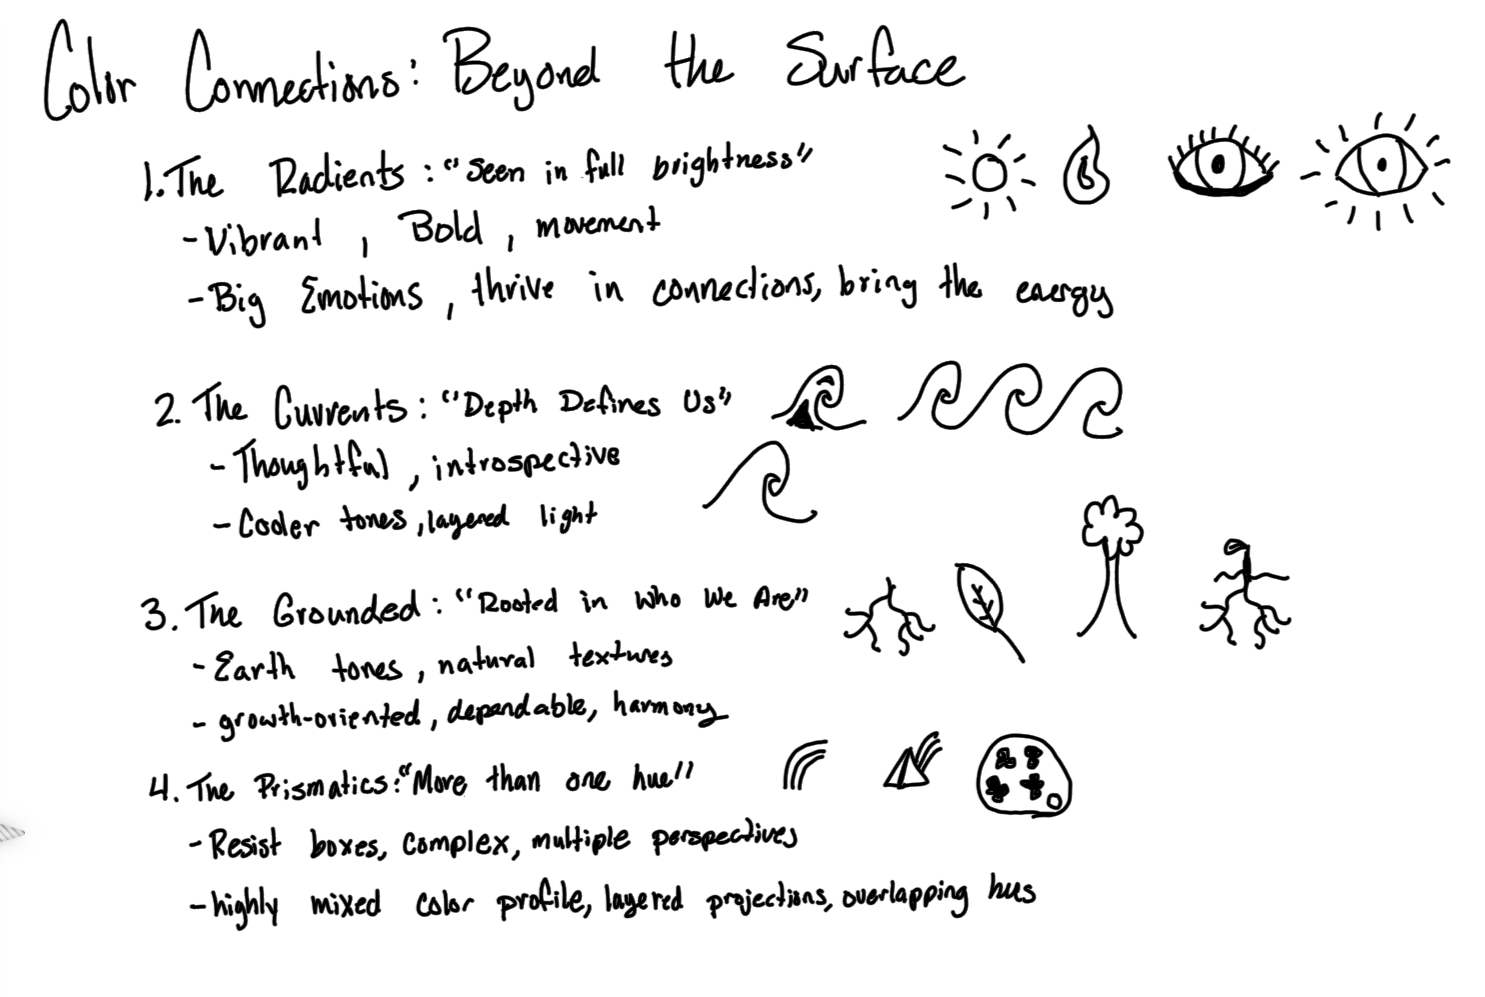 Color Connections: Beyond the Surface
1. The Radients: "Seen in full brightness"
- Vibrant, Bold, movement
- Big Emotions, thrive in connections, bring the energy
2. The Currents: "Depth Defines Us"
- Thoughtful, introspective
- Cooler tones, layered light
3. The Grounded: "Rooted in Who We Are"
- Earth tones, natural textures
- growth-oriented, dependable, harmony
4. The Prismatics: "More than one hue"
- Resist boxes, complex, multiple perspectives
- highly mixed color profile, layered projections, overlapping hues